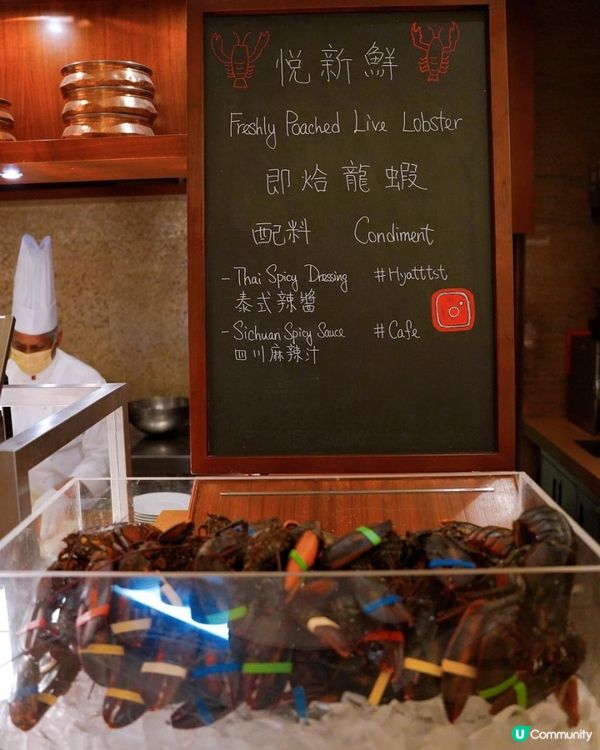 悦新鮮
Freshly Poached Live Lobster
即烚龍蝦
配料 Condiment
- Thai Spicy Dressing #Hyatttst
泰式辣醬
- Sichuan Spicy Sauce #Cafe
四川麻辣汁
U Community